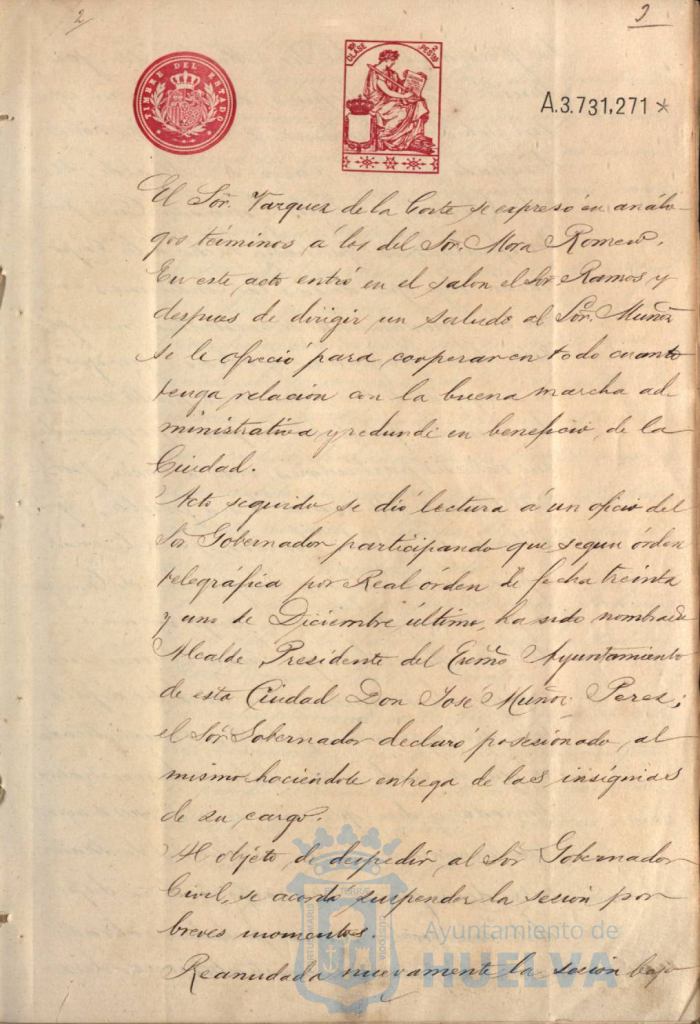 2
2
TIMBRE DEL ESTADO
10ª CLASE
2 PESTAS
A.3.731,271 *
El Sor. Vazquez de la Corte se expresó en análo-
gos términos á los del Sor. Mora Romero.
En este acto entró en el salon el Sor Ramos, y
despues de dirigir un saludo al Sor. Muñoz
se le ofreció para cooperar en todo cuanto
tenga relación con la buena marcha ad-
ministrativa y redunde en beneficio de la
Ciudad.
Acto seguido se dió lectura á un oficio del
Sor Gobernador participando que segun órden
telegráfica por Real órden de fecha treinta
y uno de Diciembre último, ha sido nombrado
Alcalde Presidente del Excmo Ayuntamiento
de esta Ciudad Don José Muñoz Perez;
el Sor Gobernador declaró posesionado al
mismo haciéndole entrega de las insignias
de su cargo.
Al objeto de despedir al Sor Gobernador
Civil, se acordó suspender la sesión por
breves momentos.
Reanudada nuevamente la sesión bajo
Ayuntamiento de
HUELVA